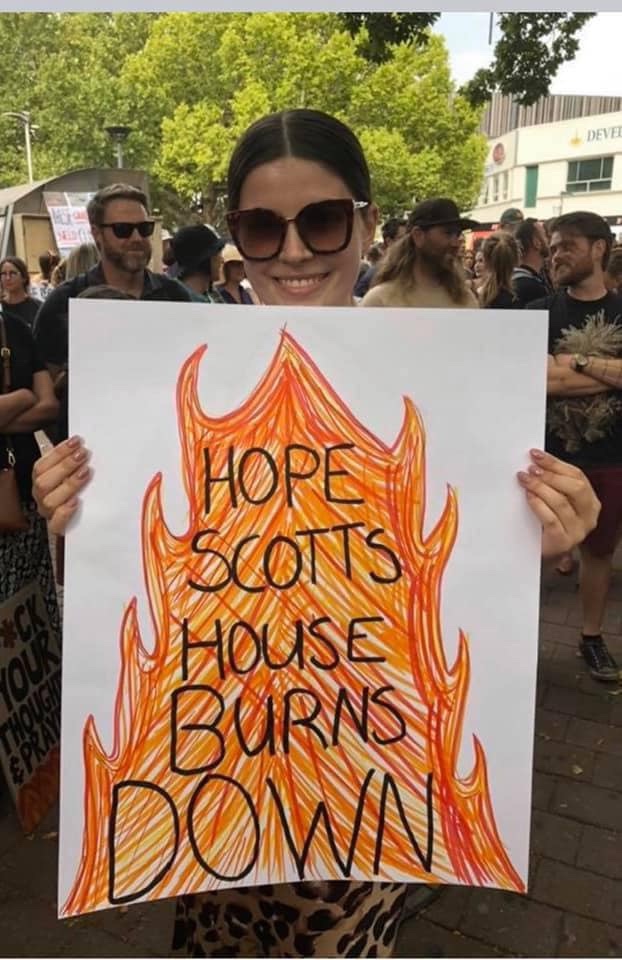 DEVEL
HOPE
SCOTTS
HOUSE
BURNS
DOWN
*CK
YOUR
THOUGHT
& PRAY